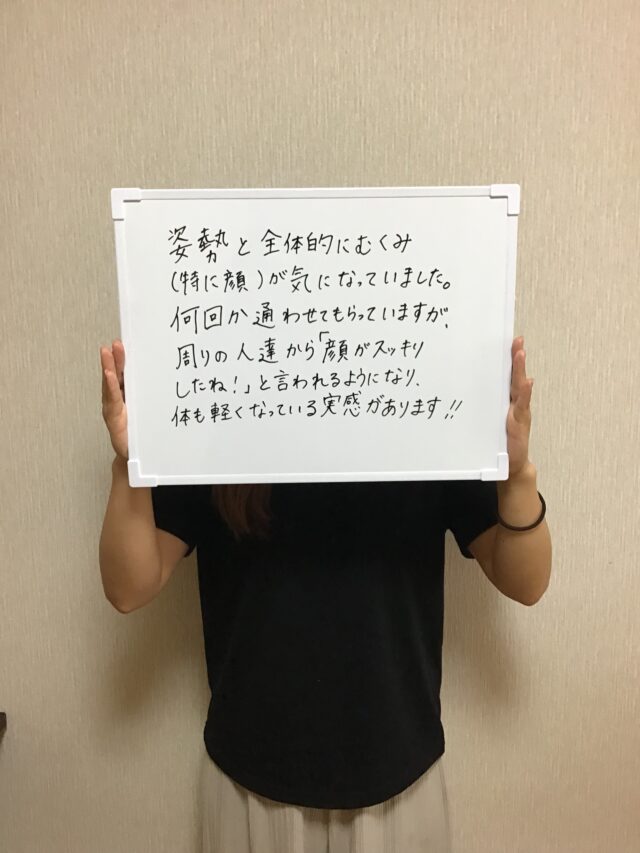 姿勢と全体的にむくみ
(特に顔)が気になっていました。
何回か通わせてもらっていますが、
周りの人達から「顔がスッキリ
したね!」と言われるようになり、
体も軽くなっている実感があります!!